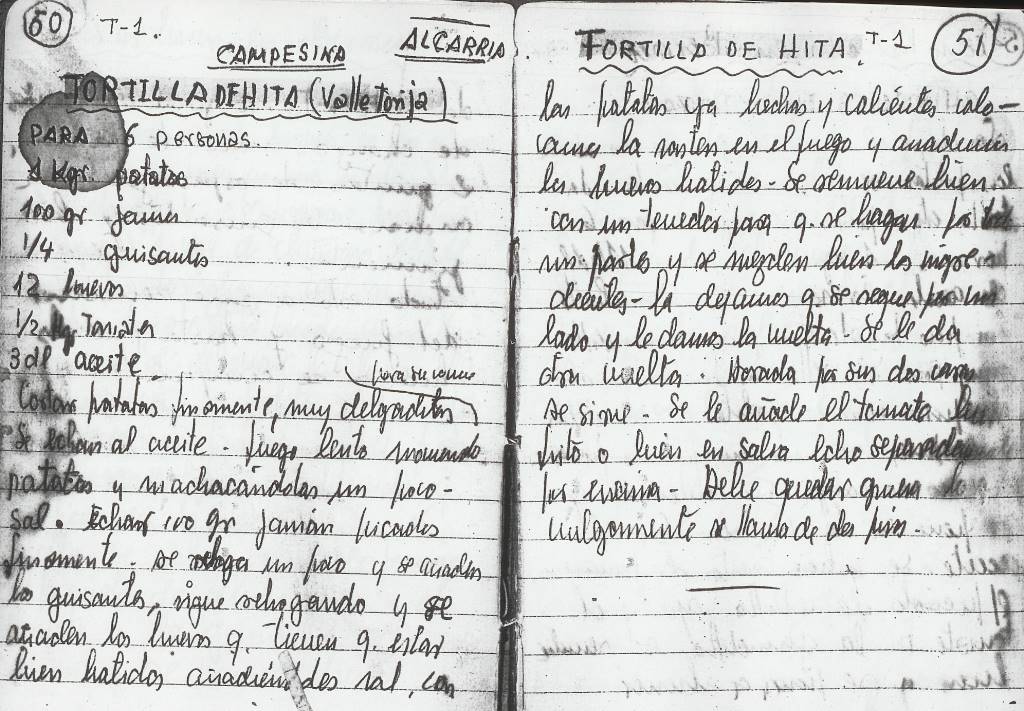 50
T-1.
CAMPESINA
ALCARRIA
TORTILLA DE HITA (Valle Torija)
PARA 6 personas.
1 Kgr. patatas
100 gr jamon
1/4 guisantes
12 huevos
1/2 Kg Tomates
3 dl aceite
Cortar patatas finamente, muy delgaditas
Se echan al aceite - fuego lento moviendo
patatas y machacándolas un poco -
sal. Echar 100 gr jamón picados
finamente. Se rehoga un poco y se añaden
los guisantes, sigue rehogando y se
añaden los huevos q. tienen q. estar
bien batidos añadiéndoles sal, con
TORTILLA DE HITA. T-1
51
las patatas ya hechas y calientes colo-
camos la sarten en el fuego y añadimos
los huevos batidos - Se remueve bien
con un tenedor para q. se hagan por
sus partes y se mezclen bien los ingre
dientes - La dejamos q. se seque por un
lado y le damos la vuelta - Se le da
otra vuelta. Dorada por sus dos caras
se sirve - Se le añade el tomate bien
frito o bien en salsa echo separado
por encima - Debe quedar gruesa
vulgarmente se llama de dos pisos.